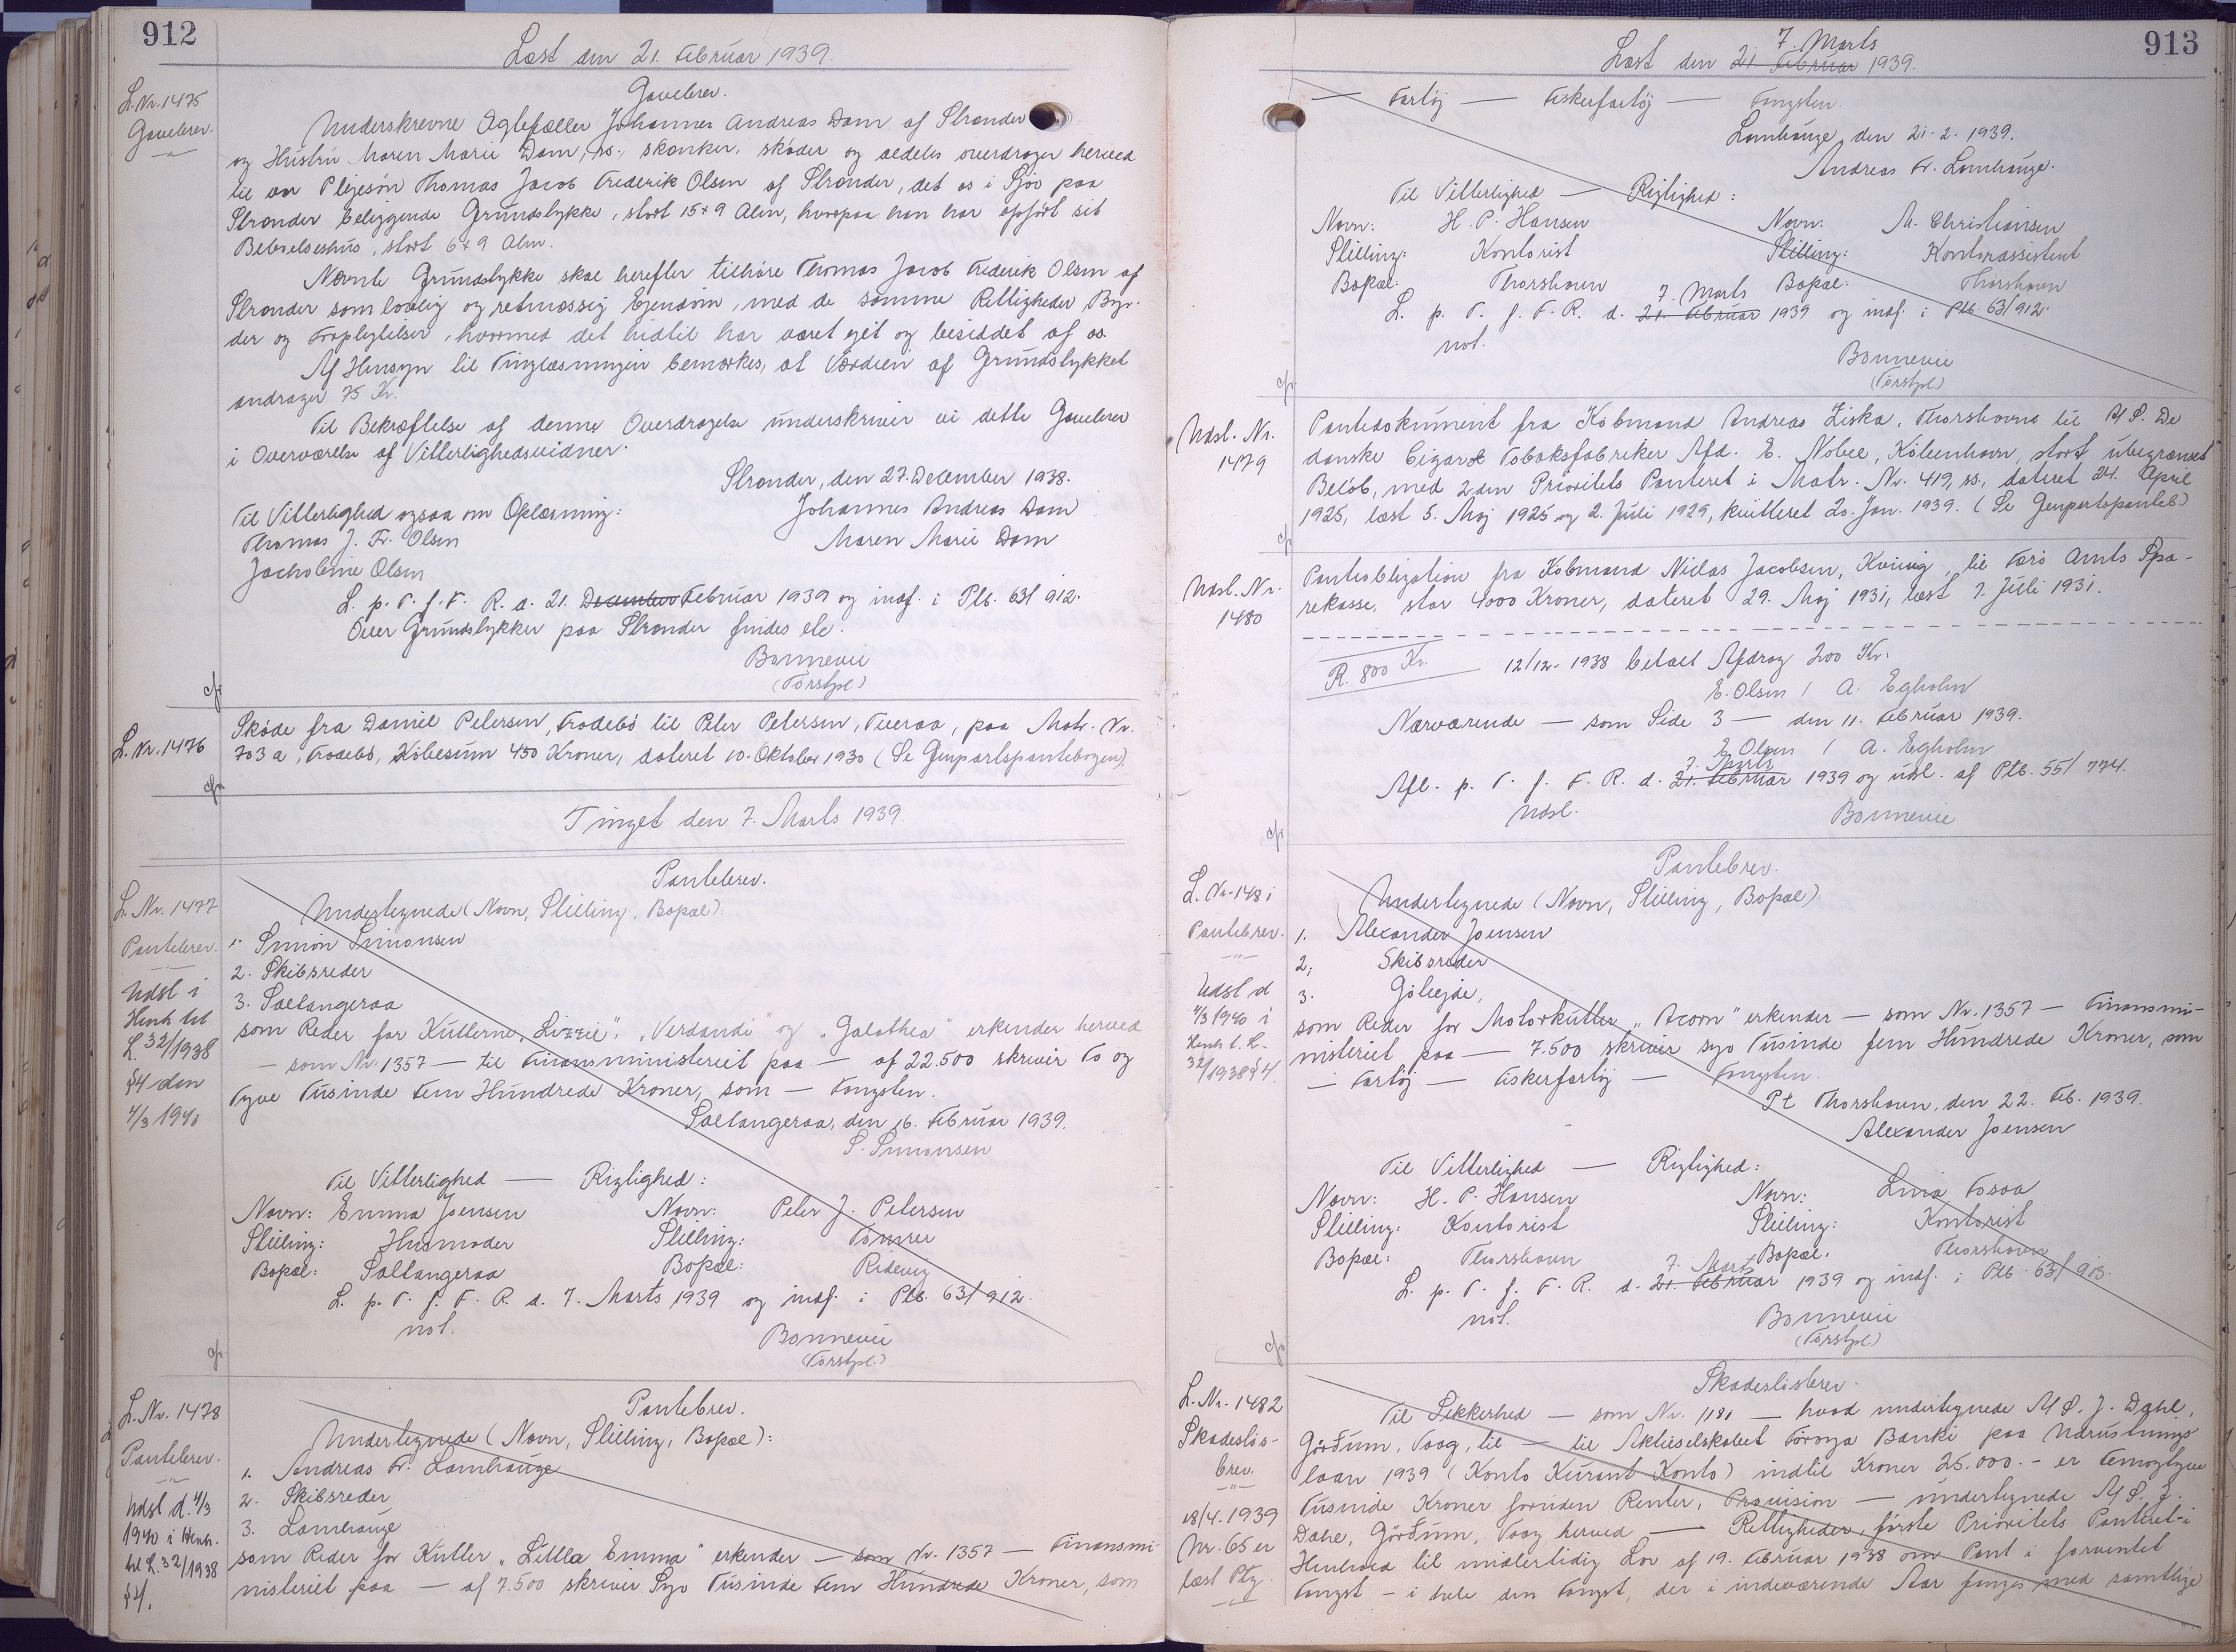 912
Læst den 21. Februar 1939.
L. Nr. 1475
Gavebrev.
Gavebrev.
Underskrevne Ægtefæller Johannes Andreas Dam af Strander
og Hustru Maren Marie Dam, ss., skænker, skøder og aldeles overdrager herved
til vor Plejesøn Thomas Jacob Frederik Olsen af Strander, det os i Sjov paa
Strander beliggende Grundstykke, stort 15 x 9 Alen, hvorpaa han har opført sit
Beboelseshus, stort 6 x 9 Alen.
Nævnte Grundstykke skal herefter tilhøre Thomas Jacob Frederik Olsen af
Strander som lovlig og retmæssig Ejendom, med de samme Rettigheder Byr-
der og Forpligtelser, hvormed det hidtil har været ejet og besiddet af os.
Af Hensyn til Tinglæsningen bemærkes, at Værdien af Grundstykket
andrager 75 Kr.
Til Bekræftelse af denne Overdragelse underskriver vi dette Gavebrev
i Overværelse af Vitterlighedsvidner.
Strander, den 27. December 1938.
Til Vitterlighed ogsaa om Oplæsning:
Johannes Andreas Dam
Thomas J. Fr. Olsen
Maren Marie Dam
Jacholine Olsen
L. p. T. f. F. R. d. 21. December Februar 1939 og indf. i Ptb. 63/912.
Over Grundstykker paa Strander findes ele.
Bonnevie
(Förstpl.)
L. Nr. 1476
Skøde fra Daniel Petersen, Froðebø til Peter Petersen, Tveraa, paa Matr. Nr.
703 a, Froðebø, Købesum 450 Kroner, dateret 10. Oktober 1930 (Se Genpartspantebogen).
Tinget den 7. Marts 1939.
L. Nr. 1477
Pantebrev.
Udsl i
Henh til
L. 32/1938
§4 den
4/3 1940
Pantebrev.
Undertegnede (Navn, Stilling, Bopæl):
1. Simon Simonsen
2. Skibsreder
3. Saltangeraa
som Reder for Kutterne „Lizzie", „Verdandi" og „Galathea" erkender herved
— som Nr. 1357 — til Finansministeriet paa — af 22.500 skriver To og
Tyve Tusinde Fem Hundrede Kroner, som — Fangsten.
Saltangeraa, den 16. Februar 1939.
S. Simonsen
Til Vitterlighed — Rigtighed:
Navn: Emma Joensen Navn: Peter J. Petersen
Stilling: Husmoder Stilling: Tømrer
Bopæl: Saltangeraa Bopæl: Ridevig
L. p. T. f. F. R. d. 7. Marts 1939 og indf. i Ptb. 63/912.
not.
Bonnevie
(Förstpl.)
L. Nr. 1478
Pantebrev.
Udsl d. 4/3
1940 i Henh.
til L. 32/1938
§4.
Pantebrev.
Undertegnede (Navn, Stilling, Bopæl):
1. Andreas Fr. Lamhauge
2. Skibsreder
3. Lamhauge
som Reder for Kutter „Littla Emma" erkender — som Nr. 1357 — Finansmi-
nisteriet paa — af 7.500 skriver Syv Tusinde Fem Hundrede Kroner, som
913
7. Marts
Læst den 21. Februar 1939.
— Fartøj — Fiskerfartøj — Fangsten.
Lamhauge, den 21-2-1939.
Andreas Fr. Lamhauge.
Til Vitterlighed — Rigtighed:
Navn: H. P. Hansen Navn: M. Christiansen
Stilling: Kontorist Stilling: Kontorassistent
Bopæl: Thorshavn Bopæl: Thorshavn
7. Marts
L. p. T. f. F. R. d. 21. Februar 1939 og indf. i Ptb. 63/912.
not.
Bonnevie
(Förstpl.)
Udsl. Nr.
1479
Pantedokument fra Købmand Andreas Ziska, Thorshavn til A/S. De
danske Cigar & Tobaksfabriker Afd. E. Nobel, København, stort ubegrænset
Beløb, med 2den Prioritets Panteret i Matr. Nr. 419, ss, dateret 24. April
1925, læst 5. Maj 1925 og 2. Juli 1929, kvitteret 20. Jan. 1939. (Se Genpartspanteb.)
Udsl. Nr.
1480
Panteobligation fra Købmand Niclas Jacobsen, Kvivig, til Færø Amts Spa-
rekasse, stor 4000 Kroner, dateret 29. Maj 1931, læst 7. Juli 1931.
R. 800 Kr. 12/12-1938 betalt Afdrag 200 Kr.
E. Olsen / A. Egholm
Nærværende — som Side 3 — den 11. Februar 1939.
E. Olsen / A. Egholm
7. Marts
Afl. p. T. f. F. R. d. 21. Februar 1939 og udsl. af Ptb. 55/774.
Udsl.
Bonnevie
L. Nr. 1481
Pantebrev.
Udsl d
4/3 1940 i
Henh t. L.
32/1938 §4.
Pantebrev.
Undertegnede (Navn, Stilling, Bopæl)
1. Alexander Joensen
2, Skibsreder
3. Gøtegjde,
som Reder for Motorkutter „Acorn" erkender — som Nr. 1357 — Finansmi-
nisteriet paa — 7.500 skriver syv Tusinde fem Hundrede Kroner, som
— Fartøj — Fiskerfartøj — Fangsten.
Pt Thorshavn, den 22. Feb. 1939.
Alexander Joensen
Til Vitterlighed — Rigtighed:
Navn: H. P. Hansen Navn: Lina Fosaa
Stilling: Kontorist Stilling: Kontorist
Bopæl: Thorshavn Bopæl. Thorshavn
7. Marts
L. p. T. f. F. R. d. 21. Februar 1939 og indf. i Ptb. 63/913.
not.
Bonnevie
(Förstpl.)
L. Nr. 1482
Skadesløs-
brev.
18/4. 1939
Nr. 65 er
læst Ptg.
Skadesløsbrev.
Til Sikkerhed — som Nr. 1181 — hvad undertegnede A/S. J. Dahl,
Gørðum, Vaag, til — til Aktieselskabet Føroya Banki paa Udrustnings-
laan 1939 (Konto Kurant Konto) indtil Kroner 25.000.- er Femogtyve
Tusinde Kroner foruden Renter, Provision — undertegnede A/S. J.
Dahl, Gørðum, Vaag herved — Rettigheder, første Prioritets Panteret i
Henhold til midlertidig Lov af 19. Februar 1938 om Pant i forventet
Fangst - i hele den Fangst, der i indeværende Aar fanges med samtlige